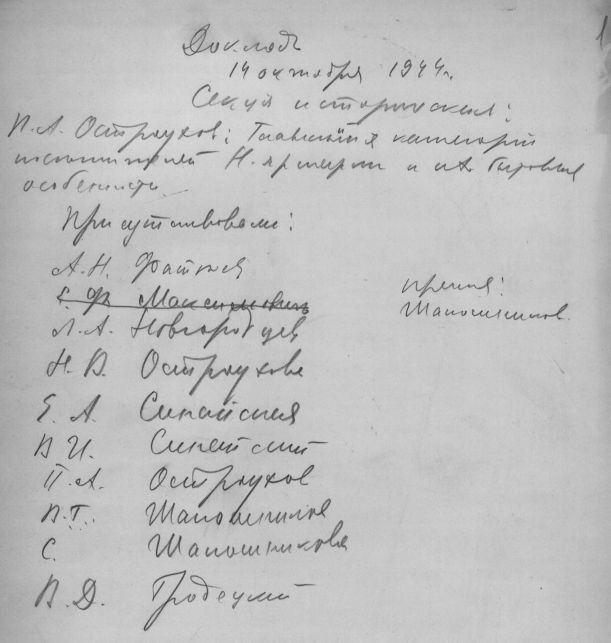 1
Докладъ
14 октября 1944 г.
Секція историческая:
П. А. Остроухов: Главнѣйшія категоріи
посѣтителей Н. ярмарки и их бытовыя
особенности
Присутствовали:
А. Н. Фатѣев
Е. Ф. Максимовичъ
Л. А. Новгородцев
Н. В. Остроухова
Е. А. Синайская
В. И. Синайский
П. А. Остроухов
В. Г. Шапошников
С. Шапошникова
В. Д. Гродецкий
пренія:
Шапошников.